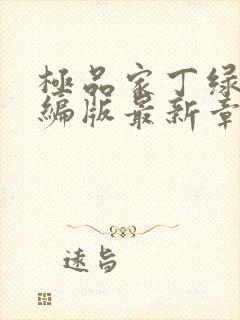 極品家丁绿
编版最新章
遠旨